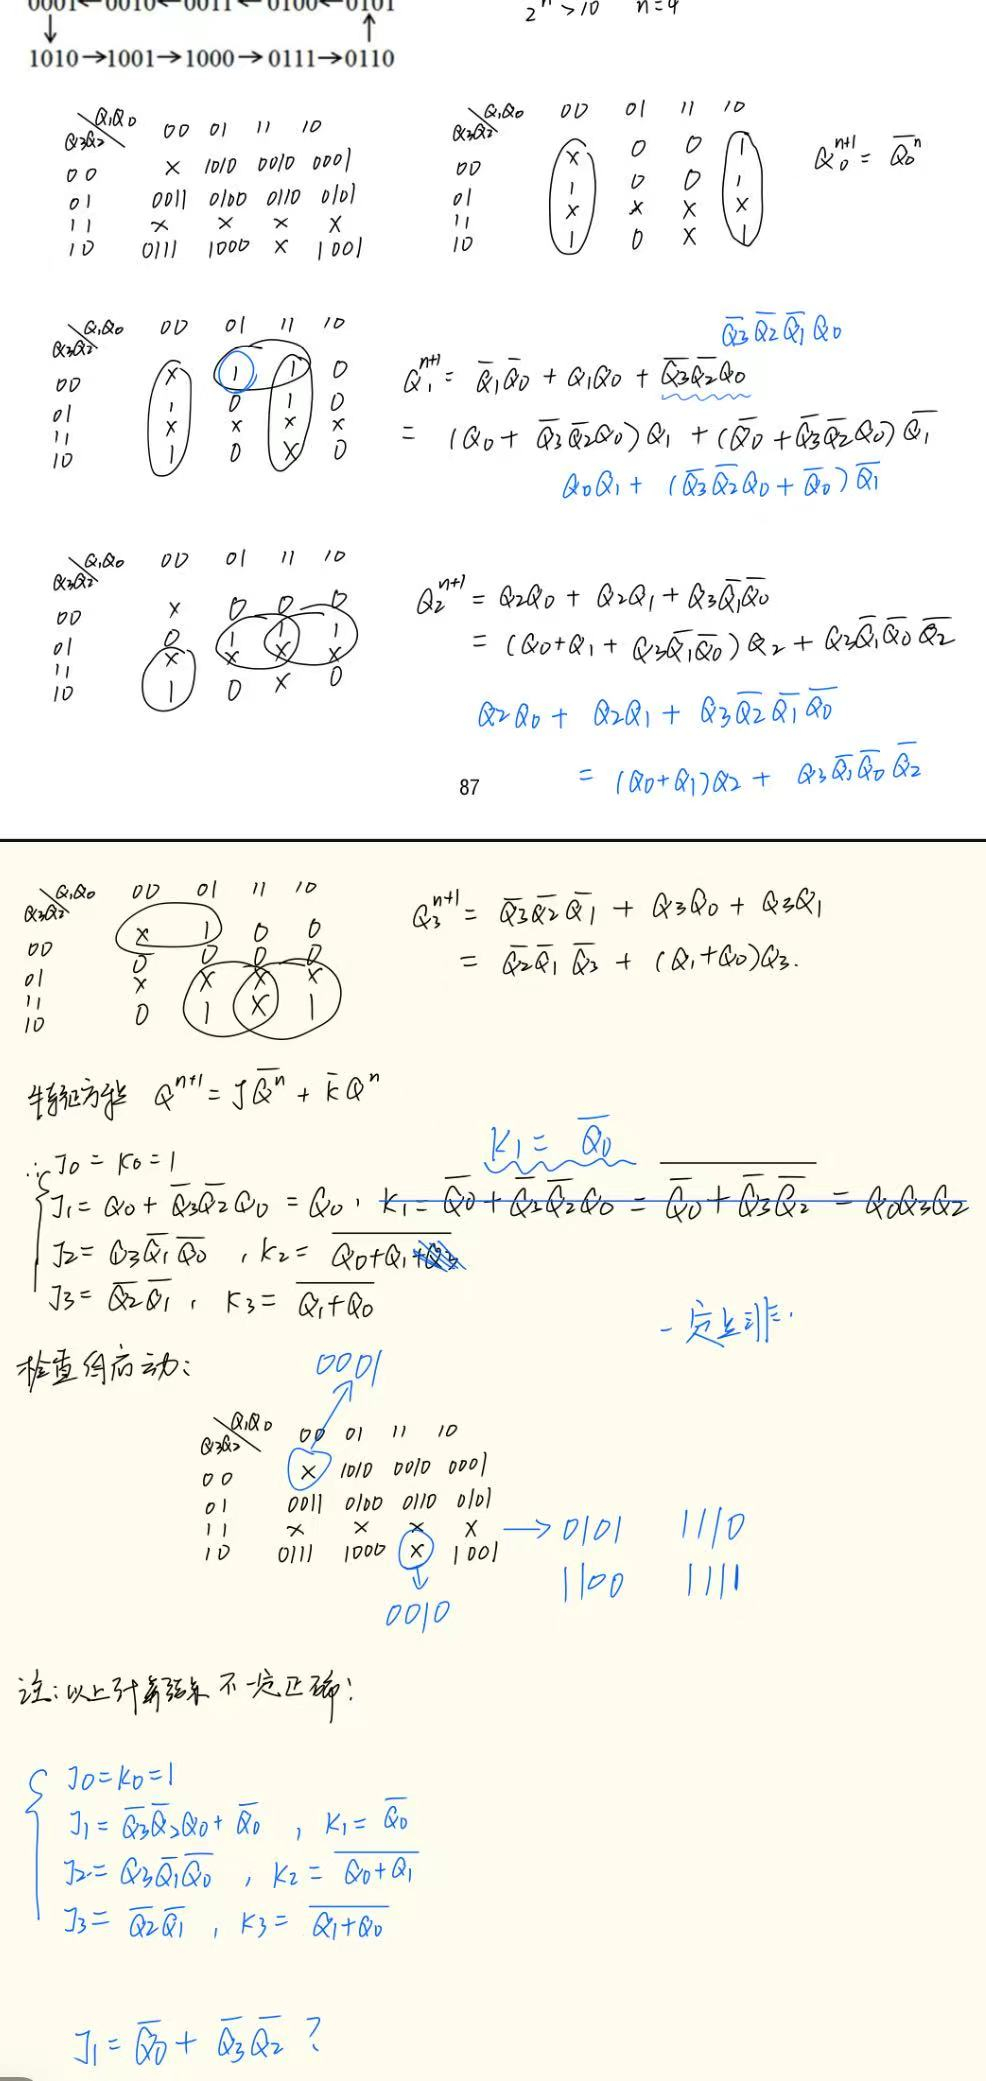 0001←0010←0011←0100←0101
2ⁿ>10 n=4
↓ ↑
1010→1001→1000→0111→0110
Q₁Q₀ 00 01 11 10
Q₃Q₂
00 × 1010 0010 0001
01 0011 0100 0110 0101
11 × × × ×
10 0111 1000 × 1001
Q₁Q₀ 00 01 11 10
Q₃Q₂
00 × 0 0 1
01 1 0 0 1
11 × × × ×
10 1 0 × 1
Q₀ⁿ⁺¹ = Q̅₀ⁿ
Q₁Q₀ 00 01 11 10
Q₃Q₂
00 × 1 1 0
01 1 0 1 0
11 × × × ×
10 1 0 × 0
Q̅₃Q̅₂Q̅₁Q₀
Q₁ⁿ⁺¹ = Q̅₁Q̅₀ + Q₁Q₀ + Q̅₃Q̅₂Q₀
= (Q₀ + Q̅₃Q̅₂Q₀)Q₁ + (Q̅₀ + Q̅₃Q̅₂Q₀)Q̅₁
Q₀Q₁ + (Q̅₃Q̅₂Q₀ + Q̅₀)Q̅₁
Q₁Q₀ 00 01 11 10
Q₃Q₂
00 × 0 0 0
01 0 1 1 1
11 × × × ×
10 1 0 × 0
Q₂ⁿ⁺¹ = Q₂Q₀ + Q₂Q₁ + Q₃Q̅₁Q̅₀
= (Q₀+Q₁ + Q₃Q̅₁Q̅₀)Q₂ + Q₃Q̅₁Q̅₀Q̅₂
Q₂Q₀ + Q₂Q₁ + Q₃Q̅₂Q̅₁Q̅₀
= (Q₀+Q₁)Q₂ + Q₃Q̅₁Q̅₀Q̅₂
87
Q₁Q₀ 00 01 11 10
Q₃Q₂
00 × 1 0 0
01 0 0 0 0
11 × × × ×
10 0 1 × 1
Q₃ⁿ⁺¹ = Q̅₃Q̅₂Q̅₁ + Q₃Q₀ + Q₃Q₁
= Q̅₂Q̅₁Q̅₃ + (Q₁+Q₀)Q₃.
特征方程 Qⁿ⁺¹ = JQ̅ⁿ + K̅Qⁿ
K₁ = Q̅₀
∴ J₀ = K₀ = 1
J₁ = Q₀ + Q̅₃Q̅₂Q₀ = Q₀, K₁ = Q̅₀ + Q̅₃Q̅₂Q₀ = Q̅₀ + Q̅₃Q̅₂ = Q₀Q₃Q₂
J₂ = Q₃Q̅₁Q̅₀, K₂ = \overline{Q₀+Q₁}
J₃ = Q̅₂Q̅₁, K₃ = \overline{Q₁+Q₀}
一定上非.
检查自启动:
0001
Q₁Q₀ 00 01 11 10
Q₃Q₂
00 × 1010 0010 0001
01 0011 0100 0110 0101
11 × × × × → 0101 1110
10 0111 1000 × 1001 1100 1111
↓
0010
注:以上计算结果不一定正确!
J₀=K₀=1
J₁ = Q̅₃Q̅₂Q₀ + Q̅₀, K₁ = Q̅₀
J₂ = Q₃Q̅₁Q̅₀, K₂ = \overline{Q₀+Q₁}
J₃ = Q̅₂Q̅₁, K₃ = \overline{Q₁+Q₀}
J₁ = Q̅₀ + Q̅₃Q̅₂ ?